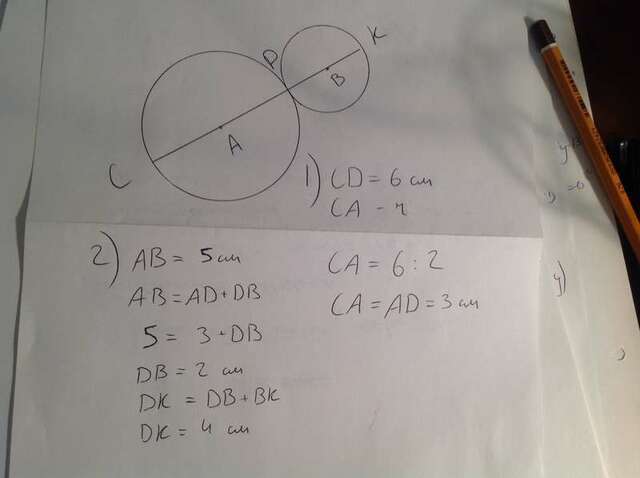 D
K
B
A
C
1) CD = 6 см
CA - r
2) AB = 5 см
AB = AD + DB
5 = 3 + DB
DB = 2 см
DK = DB + BK
DK = 4 см
CA = 6 : 2
CA = AD = 3 см
y)